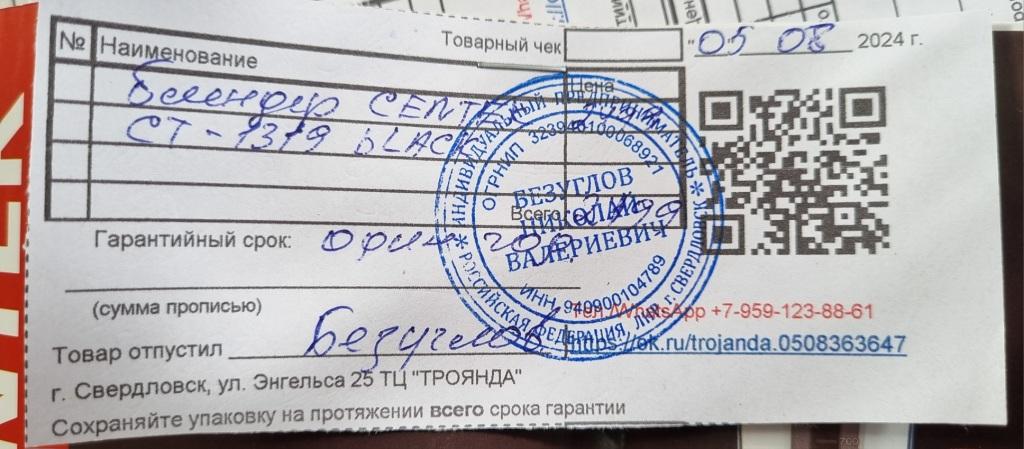 Товарный чек "05 08 2024 г.
№ Наименование
Цена
Блендер CENTEK
CT-1319 BLACK
Всего
Гарантийный срок: один год
(сумма прописью)
Товар отпустил Безуглов
г. Свердловск, ул. Энгельса 25 ТЦ "ТРОЯНДА"
Сохраняйте упаковку на протяжении всего срока гарантии
Тел./WhatsApp +7-959-123-88-61
https://ok.ru/trojanda.0508363647
ИНДИВИДУАЛЬНЫЙ ПРЕДПРИНИМАТЕЛЬ
РОССИЙСКАЯ ФЕДЕРАЦИЯ, ЛНР г.СВЕРДЛОВСК
ОГРНИП 323946100068921
БЕЗУГЛОВ
НИКОЛАЙ
ВАЛЕРИЕВИЧ
ИНН 949900104789